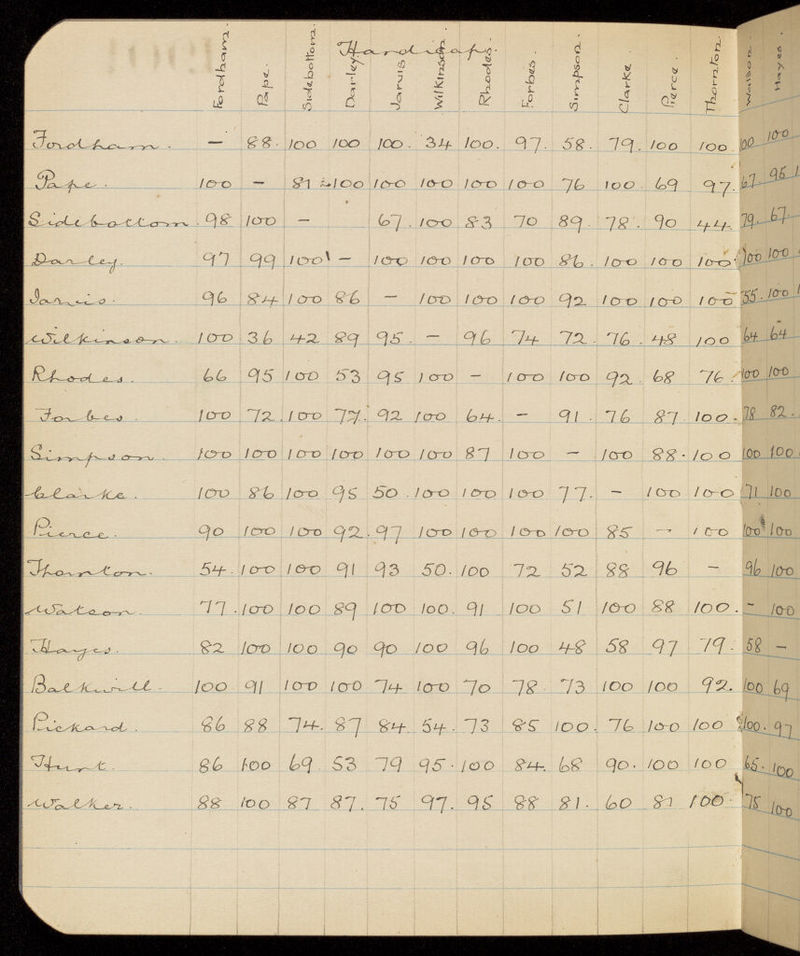 Handicaps.
Fordham. Pape. Sidebottom. Darley. Jarvis. Wilkinson. Rhodes. Forbes. Simpson. Clarke. Pierce. Thornton. Watson. Hayes.
Fordham. — 88. 100 100 100. 34 100. 97. 58. 79. 100 100 100 100
Pape. 100 — 81 100 100 100 100 100 76 100 69 97. 67 95
Sidebottom. 98 100 — 67. 100 83 70 89. 78. 90 44. 79. 67
Darley. 97 99 100 — 100 100 100 100 86. 100 100 100 100 100
Jarvis. 96 84 100 86 — 100 100 100 92 100 100 100 55. 100
Wilkinson. 100 36 42 89 95. — 96 74 72. 76. 48 100 64 64
Rhodes. 66 95 100 53 95 100 — 100 100 92 68 76. 100 100
Forbes. 100 72. 100 77. 92 100 64. — 91. 76 87 100. 78 82.
Simpson. 100 100 100 100 100 100 87 100 — 100 88. 100 100 100
Clarke. 100 86 100 95 50. 100 100 100 77. — 100 100 71 100
Pierce. 90 100 100 92. 97 100 100 100 100 85 — 100 100 100
Thornton. 54. 100 100 91 93 50. 100 72 52 88 96 — 96 100
Watson. 77. 100 100 89 100 100. 91 100 51 100 88 100. — 100
Hayes. 82 100 100 90 90 100 96 100 48 58 97 79. 58 —
Balkwill. 100 91 100 100 74 100 70 78. 73 100 100 92. 100 69
Pickard. 86 88 74. 87 84. 54. 73 85 100. 76 100 100 100. 97
Hurt. 86 100 69 53 79 95. 100 84. 68 90. 100 100 65. 100
Walker. 88 100 87 87. 75 97. 95 88 81. 60 81 100. 75 100